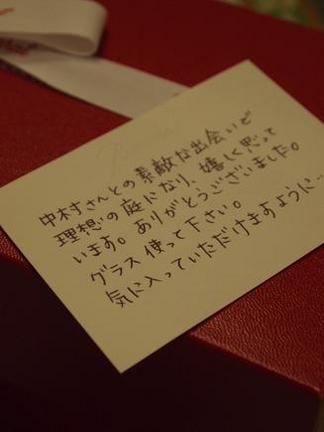 中村さんとの素敵な出会いで
理想の庭になり、嬉しく思って
います。ありがとうございました。
グラス使って下さい。
気に入っていただけますように…